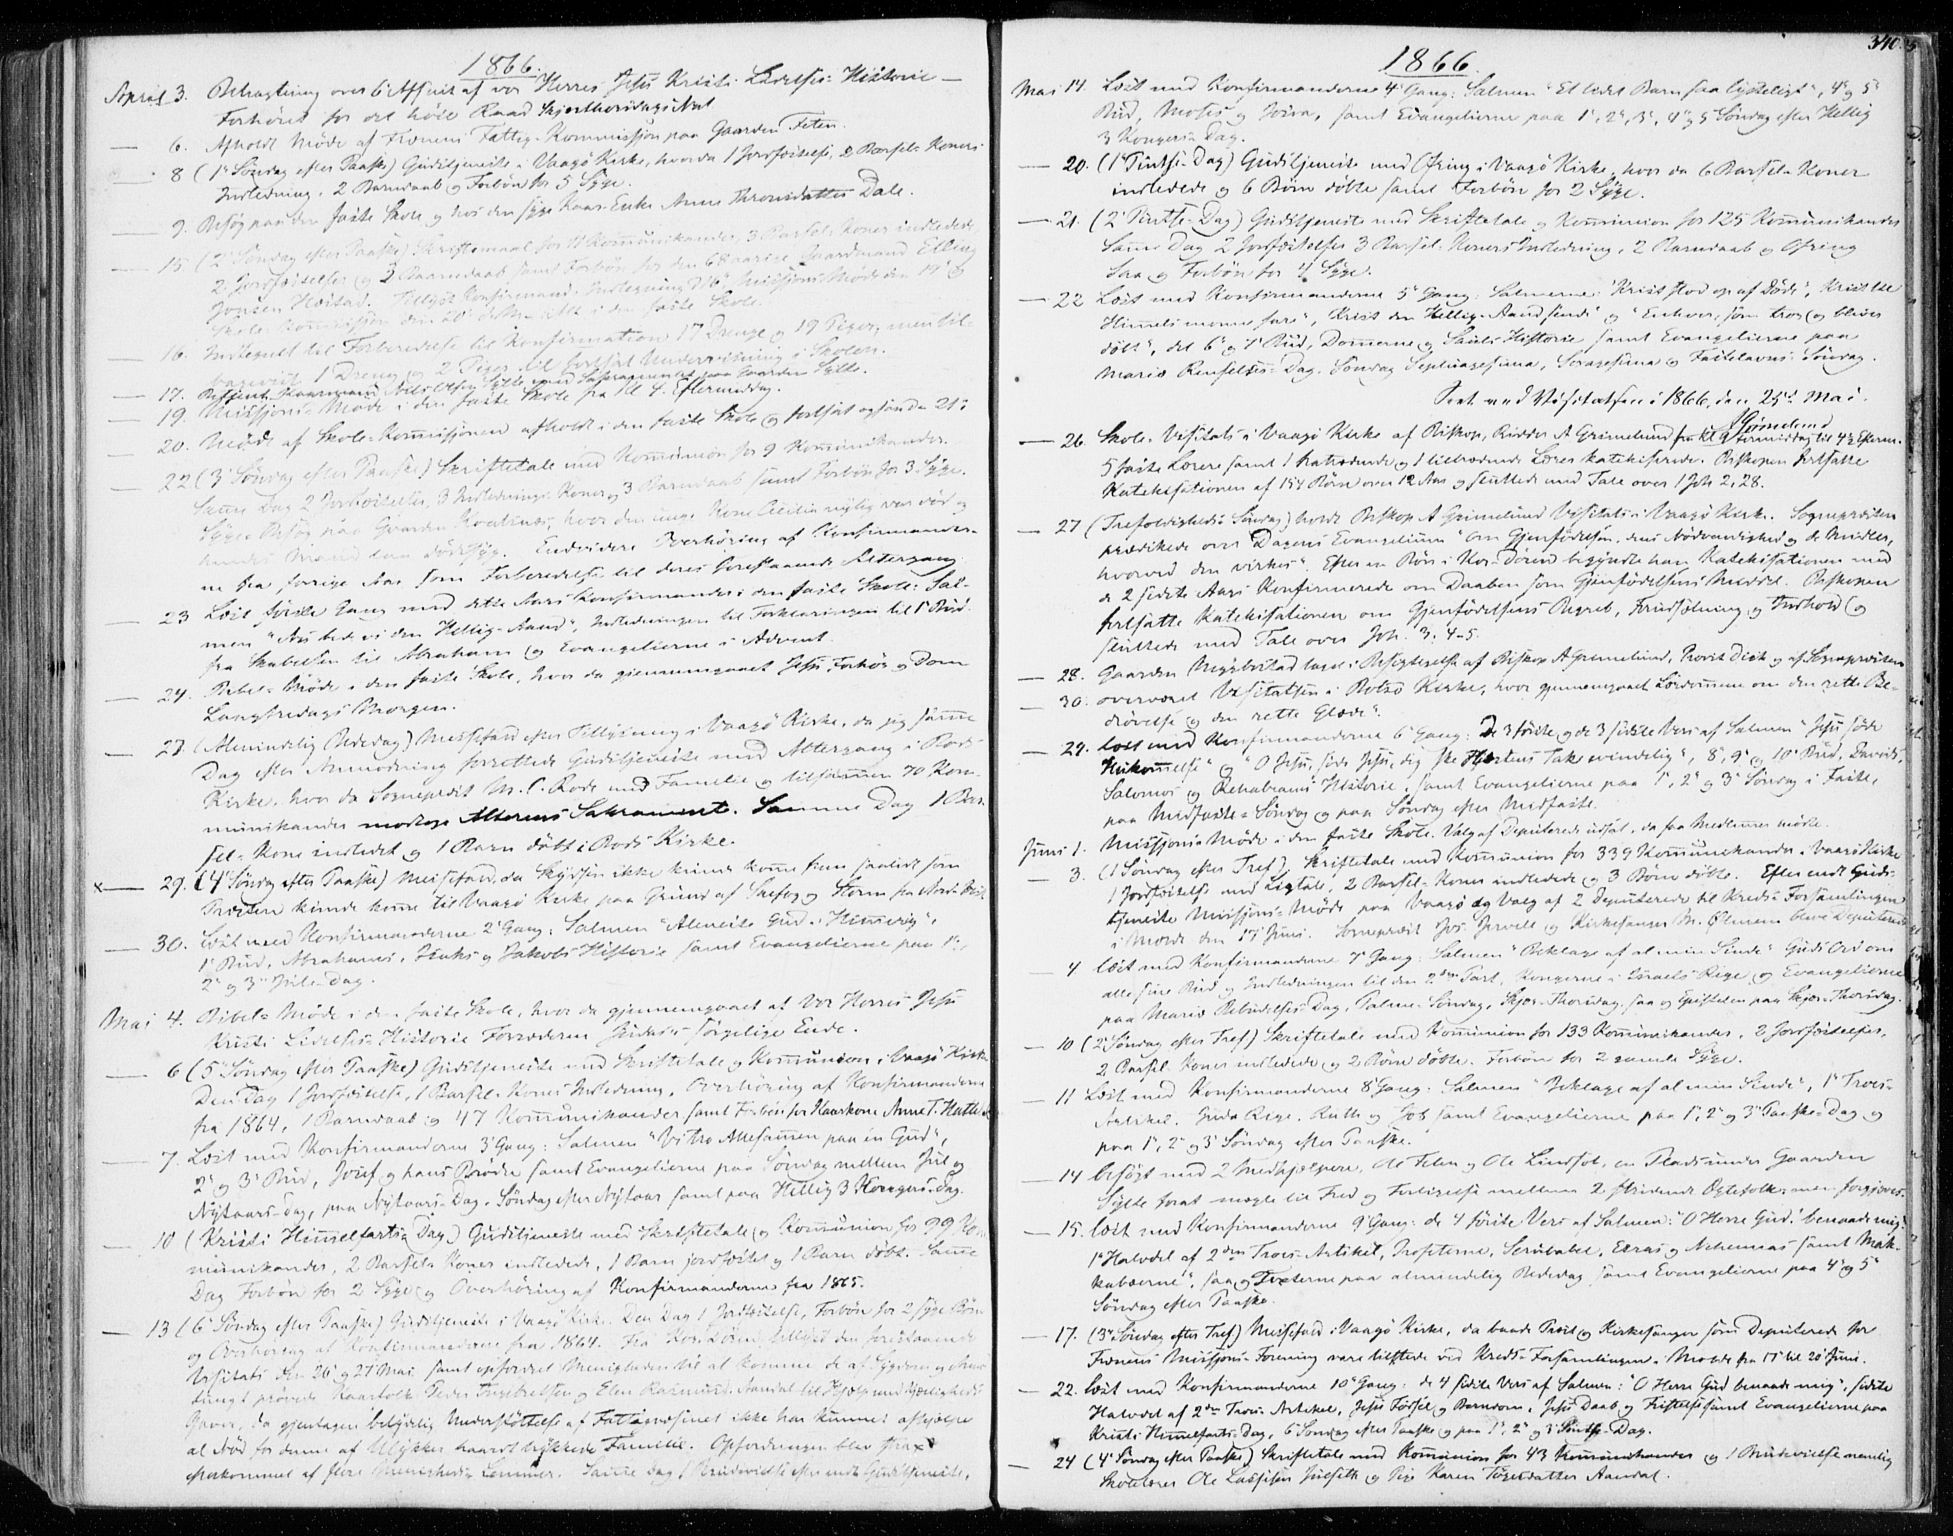 1866.
April 3. Betragtning over 6 Afsnit af vor Herres Jesu Kristi Lidelses-Historie —
Forhöret for det höie Raad Skjærthorsdags Nat
— 6. Afholdt Möde af Frænens Fattig-Kommission paa Gaarden Feten.
— 8 (1ste Søndag efter Paaske) Gudstjeneste i Vaagö Kirke, hvorda 1 Jordfæstelse, 2 Barsel-Koners
Indledning, 2 Barnedaab og Forbön for 5 Syge.
— 9. Besög paa den faste Skole og hos den syge Kaar-Enke Anne Thronsdatter Dale.
— 15 (2 Søndag efter Paaske) Skriftemaal for 11 Kommunikander, 3 Barsel-Koner indledede,
2 Jordfæstelser og 2 Barnedaab samt Forbön for den 68 aarige Gaardmand Elling
Jonsen Hostad. Tillyst Konfirmand-Indtegning d 16, Missions-Möde den 19 og
Skole-Kommission den 20 i den faste Skole.
— 16. Indtegnet til Forberedelse til Konfirmation 17 Drenge og 19 Piger, men til-
bageviist 1 Dreng og 2 Piger til fortsat Underviisning i Skolen.
— 17. Betjent Gaardmand Sylte med Sakramentet paa Gaarden Sylte.
— 19. Missions-Möde i den faste Skole fra Kl 4. Eftermiddag.
— 20. Möde af Skole-Kommisjonen afholdt i den faste Skole og fortsat ogsaa den 21:
— 22 (3 Søndag efter Paaske) Skriftetale med Kommunion for 9 Kommunikander.
Samme Dag 2 Jordfæstelser, 3 Indlednings-Koner og 3 Barnedaab samt Forbön for 3 Syge.
Syge-Besög paa Gaarden, hvor den unge Kone Cecilia nylig var död og
hendes Mand laa dödssyg. Endvidere Overhöring af Konfirmander-
ne fra forrige Aar som Forberedelse til deres forestaaende Altergang.
— 23 Læst første Gang med dette Aars Konfirmander i den faste Skole: Sal-
men "Nu bede vi den Hellig-Aand", Indledningen til Forklaringen til 1 Bud.
fra Skabelsen til Abraham og Evangelierne i Advent.
— 24. Bibel-Möde i den faste Skole, hvor da gjennemgaaet Jesu Forhör og Dom
Langfredags Morgen.
— 27. (Almindelig Bededag) Messefald efter Tillysning i Vaagö Kirke, da jeg samme
Dag efter Anmodning forrettede Gudstjeneste med Altergang i Bods
Kirke, hvor da Sogneprest M. C. Bode med Familie og tilsammen 70 Kom-
munikander modtoge Alterens Sakrament. Samme Dag 1 Bar-
sel-Kone indledet og 1 Barn döbt i Bods Kirke.
x — 29. (4 Söndag efter Paaske) Messefald, da Skydsen ikke kunde komme frem saalidt som
Presten kunde komme til Vaagö Kirke paa Grund af Snefog og Storm fra Nord-Vest
— 30. Læst med Konfirmanderne 2 Gang: Salmen "Aleneste Gud i Himmerig",
1 Bud, Abrahams, Isaks og Jakobs Historie samt Evangelierne paa 1ste,
2 og 3 Jule-Dag.
Mai 4. Bibel-Möde i den faste Skole, hvor da gjennemgaaet af Vor Herres Jesu
Kristi Lidelses Historie Forræderen Judas's sörgelige Ende.
— 6 (5 Søndag efter Paaske) Gudstjeneste med Skriftetale og Kommunion i Vaagö Kirke
Den Dag 1 Jordfæstelse, 1 Barsel-Kones Indledning, Overhöring af Konfirmanderne
fra 1864, 1 Barnedaab og 47 Kommunikander samt Forbön for Kaarkone Anne T. Hatle
— 7. Læst med Konfirmanderne 3 Gang: Salmen "Vi tro Allesammen paa en Gud",
2 og 3 Bud, Josef og hans Brödre samt Evangelierne paa Söndag mellem Jul og
Nytaars-Dag, paa Nytaars-Dag, Söndag efter Nytaar samt paa Hellig 3 Kongers-Dag.
— 10 (Kristi Himmelfarts-Dag) Gudstjeneste med Skriftetale og Kommunion for 99 Ko-
munikander, 2 Barsel-Koner indledede, 1 Barn jordfæstet og 1 Barn döbt. Samme
Dag Forbön for 2 Syge og Overhöring af Konfirmanderne fra 1865.
— 13 (6 Søndag efter Paaske) Gudstjeneste i Vaagö Kirke. Den Dag 1 Jordfæstelse, Forbön for 2 syge Börn
og Overhöring af Konfirmanderne fra 1864. Fra Kor-Dören tillyst den forestaaende
Visitats den 26 og 27 Mai samt opfordret Menigheden til at komme de af Sygdom og Armod
tungt prövede Kaarfolk Peder Ingebretsen og Elen Rasmusd. Aandal til Hjælp med Kjærligheds-
Gaver, da gjentagen betydelig Understöttelse af Fattigvæsenet ikke har kunnet afhjelpe
al Nöd for denne af Ulykker haardt trykkede Familie. Opfordringen blev strax
efterkommet af flere Menigheds-Lemmer. Samme Dag 1 Brudevielse efter endt Gudstjeneste.
340.
1866.
Mai 14. Læst med Konfirmanderne 4 Gang: Salmen "Et lidet Barn saa lysteligt", 4 og 5
Bud, Moses og Josva, samt Evangelierne paa 1, 2, 3, 4 og 5 Söndag efter Hellig
3 Kongers Dag.
— 20. (1 Pintse-Dag) Gudstjeneste med Ofring i Vaagö Kirke, hvor da 6 Barsel-Koner
indledede og 6 Börn döbte samt Forbön for 2 Syge.
— 21. (2 Pintse-Dag) Gudstjeneste med Skriftetale og Kommunion for 125 Kommunikander
Samme Dag 2 Jordfæstelser 3 Barsel-Koners Indledning, 2 Barnedaab og Ofring
saa og Forbön for 4 Syge.
— 22 Læst med Konfirmanderne 5 Gang: Salmerne: "Krist stod op af Döde", "Krist til
Himmels monne fare", "Krist den Hellig-Aand sende" og "Enhver, som troer og bliver
döbt", det 6 og 7 Bud, Dommerne og Sauls Historie samt Evangelierne paa
Mariæ Renselses-Dag, Söndag Septuagesima, Sexagesima og Fastelavns Söndag.
Seet ved Visitatsen i 1866, den 25de Mai.
Grimelund
— 26. Skole-Visitats i Vaagö Kirke af Biskop, Ridder A Grimelund fra Kl 9 Formiddag til 4½ Efterm.
5 faste Lærere samt 1 fratrædende og 1 tiltrædende Lærer katekiserede. Biskopen fortsatte
Katekisationen af 154 Börn over 12 Aar og sluttede med Tale over 1 Joh 2,28.
— 27 (Trefoldigheds Söndag) holdt Biskop A Grimelund Visitats i Vaagö Kirke. Sognepresten
prædikede over Dagens Evangelium "om Gjenfødelsen, dens Nödvendighed og de Midler,
hvorved den virkes". Efter en Bön i Kor-Dören begyndte han Katekisationen med
de 2 sidste Aars Konfirmerede om Daaben som Gjenfödelsens Middel. Biskopen
fortsatte Katekisationen om Gjenfödelsens Begreb, Forudsætning og Indhold og
sluttede med Tale over Joh. 3. 4-5.
— 28. Gaarden Myrbostad taget i Besigtigelse af Biskop A Grimelund, Provst Dick og af Sognepresten
— 30. overværet Visitatsen i Bolsö Kirke, hvor gjennemgaaet Lærdommene om den rette Be-
drövelse og den rette Glæde".
— 29. læst med Konfirmanderne 6 Gang: De 3 förste og de 3 sidste Vers af Salmen "Jesu söde
Hukommelse" og "O Jesu, söde Jesu, dig ske Hjertens Tak evindelig", 8, 9 og 10 Bud, Davids,
Salomos og Rehabeams Historie, samt Evangelierne paa 1, 2 og 3 Söndag i Faste,
paa Midfaste-Söndag og paa Söndag efter Midfaste.
Juni 1. Missjons-Möde i den faste Skole. Valg af Deputerede udsat, da faa Medlemmer mödte.
— 3. (1 Søndag efter Tref) Skriftetale med Kommunion for 339 Kommunikander i Vaagö Kirke
1 Jordfæstelse med Ligtale, 2 Barsel-Koner indledede og 3 Börn döbte. Efter endt Guds-
tjeneste Missjons-Möde paa Vaagö og Valg af 2 Deputerede til Kreds-Forsamlingen
i Molde den 17 Juni. Sogneprest Jos. Jervell og Kirkesanger M. Ölmen bleve Deputerede
— 4 læst med Konfirmanderne 7 Gang: Salmen "Beklage af al min Sinde" Guds Ord om
alle sine Bud og Indledningen til den 2den Part, Kongerne i Israels Rige og Evangelierne
paa Mariæ Bebudelses Dag, Palme-Söndag, Skjær-Thorsdag, saa og Epistelen paa Skjær-Thorsdag.
— 10 (2 Søndag efter Tref) Skriftetale med Kommunion for 133 Kommunikander, 2 Jordfæstelser,
2 Barsel-Koner indledede og 2 Börn döbte. Forbön for 2 gamle Syge.
— 11 Læst med Konfirmanderne 8 Gang: Salmen "Beklage af al min Sinde", 1 Troes-
Artikel, Juda Rige, Ruth og Job samt Evangelierne paa 1, 2 og 3 Paaske-Dag og
paa 1, 2 og 3 Söndag efter Paaske.
— 14 besögt med 2 Medhjælpere, Ole Feten og Ole Lindset, en Plads under Gaarden
Sylte forat mægle til Fred og Forligelse mellem 2 stridende Ægtefolk, men forgjæves.
— 15. læst med Konfirmanderne 9 Gang: de 4 förste Vers af Salmen: "O Herre Gud! benaade mig"
1 Halvdel af 2den Troes-Artikel, Profeterne, Serubabel, Esras og Nehemias samt Mak-
kabæerne", saa og Texterne paa almindelig Bededag samt Evangelierne paa 4 og 5
Söndag efter Paaske.
— 17. (3 Söndag efter Tref) Messefald i Vaagö Kirke, da baade Prest og Kirkesanger som Deputerede for
Frænens Missjons-Forening vare tilstede ved Kreds-Forsamlingen i Molde fra 17 til 20 Juni.
— 22. læst med Konfirmanderne 10 Gang: de 4 sidste Vers af Salmen: "O Herre Gud benaade mig", sidste
Halvdel af 2den Troes-Artikel, Jesu Födsel og Barndom, Jesu Daab og Fristelse samt Evangelierne paa
Kristi Himmelfarts-Dag, 6 Söndag efter Paaske og paa 1, 2 og 3 Pintse-Dag.
— 24 (4 Søndag efter Paaske) Skriftetale med Kommunion for 43 Kommunikander og 1 Brudevielse nemlig
Skolelærer Ole Lassesen Julseth og Pige Karen Tögersdatter Aandal.